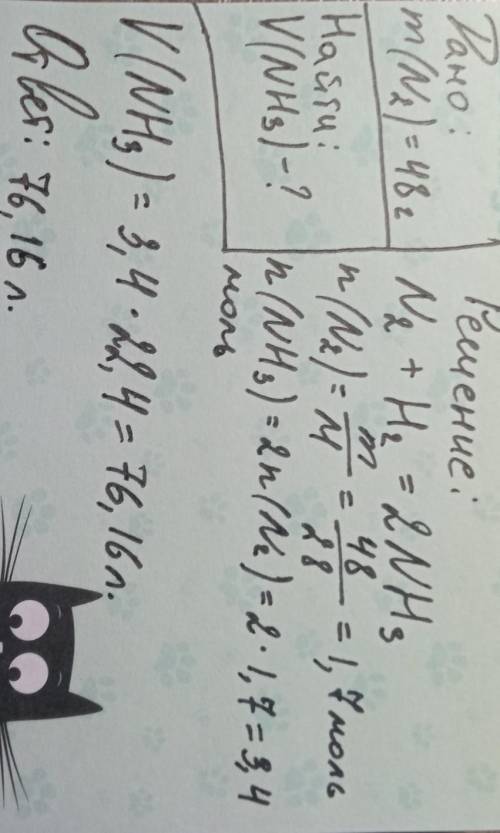 Дано:
m(N₂)=48г
Найти:
V(NH₃)-?
Решение:
N₂ + H₂ = 2NH₃
n(N₂)= m/M = 48/28 = 1,7моль
n(NH₃)=2n(N₂)=2·1,7=3,4
моль
V(NH₃)=3,4·22,4=76,16л.
Ответ: 76,16 л.